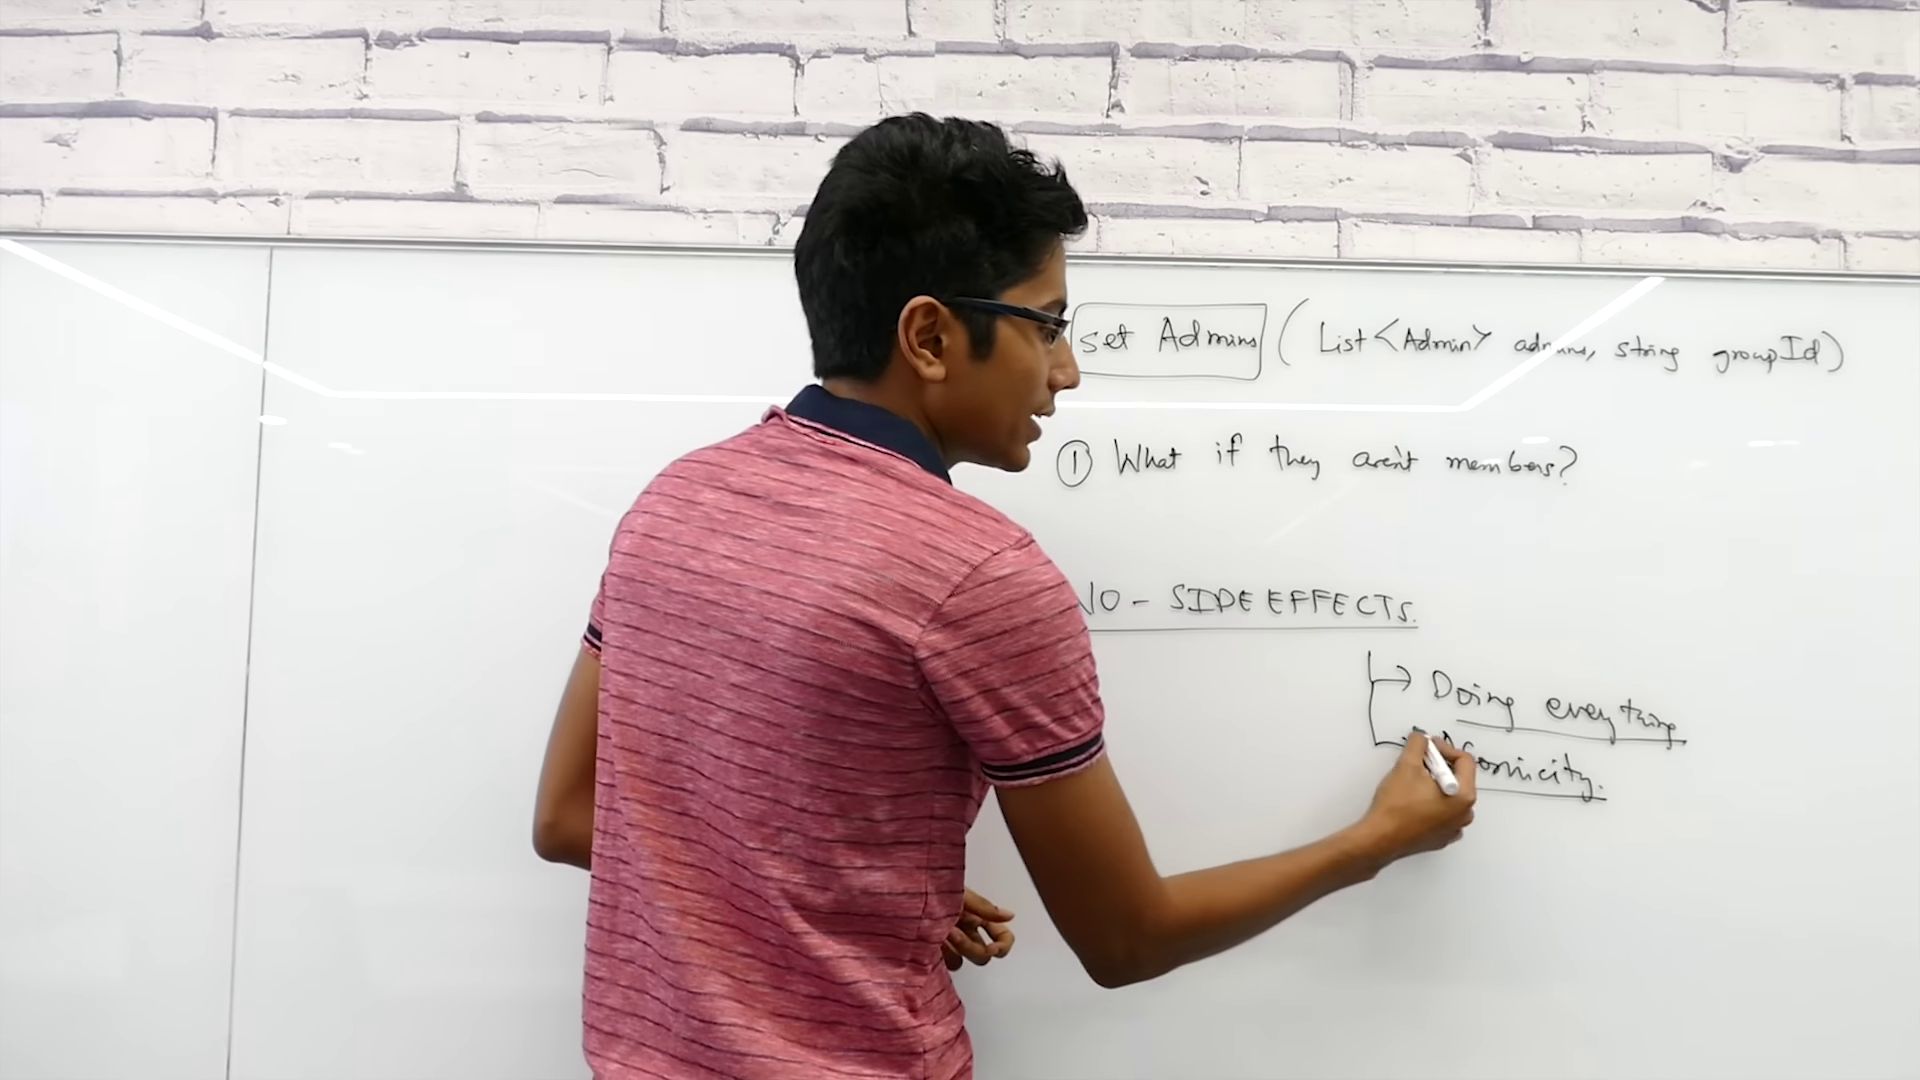 set Admins ( List<Admin> admins, string groupId)
① What if they aren't members?
NO - SIDE EFFECTS.
→ Doing everything
→ Atomicity.